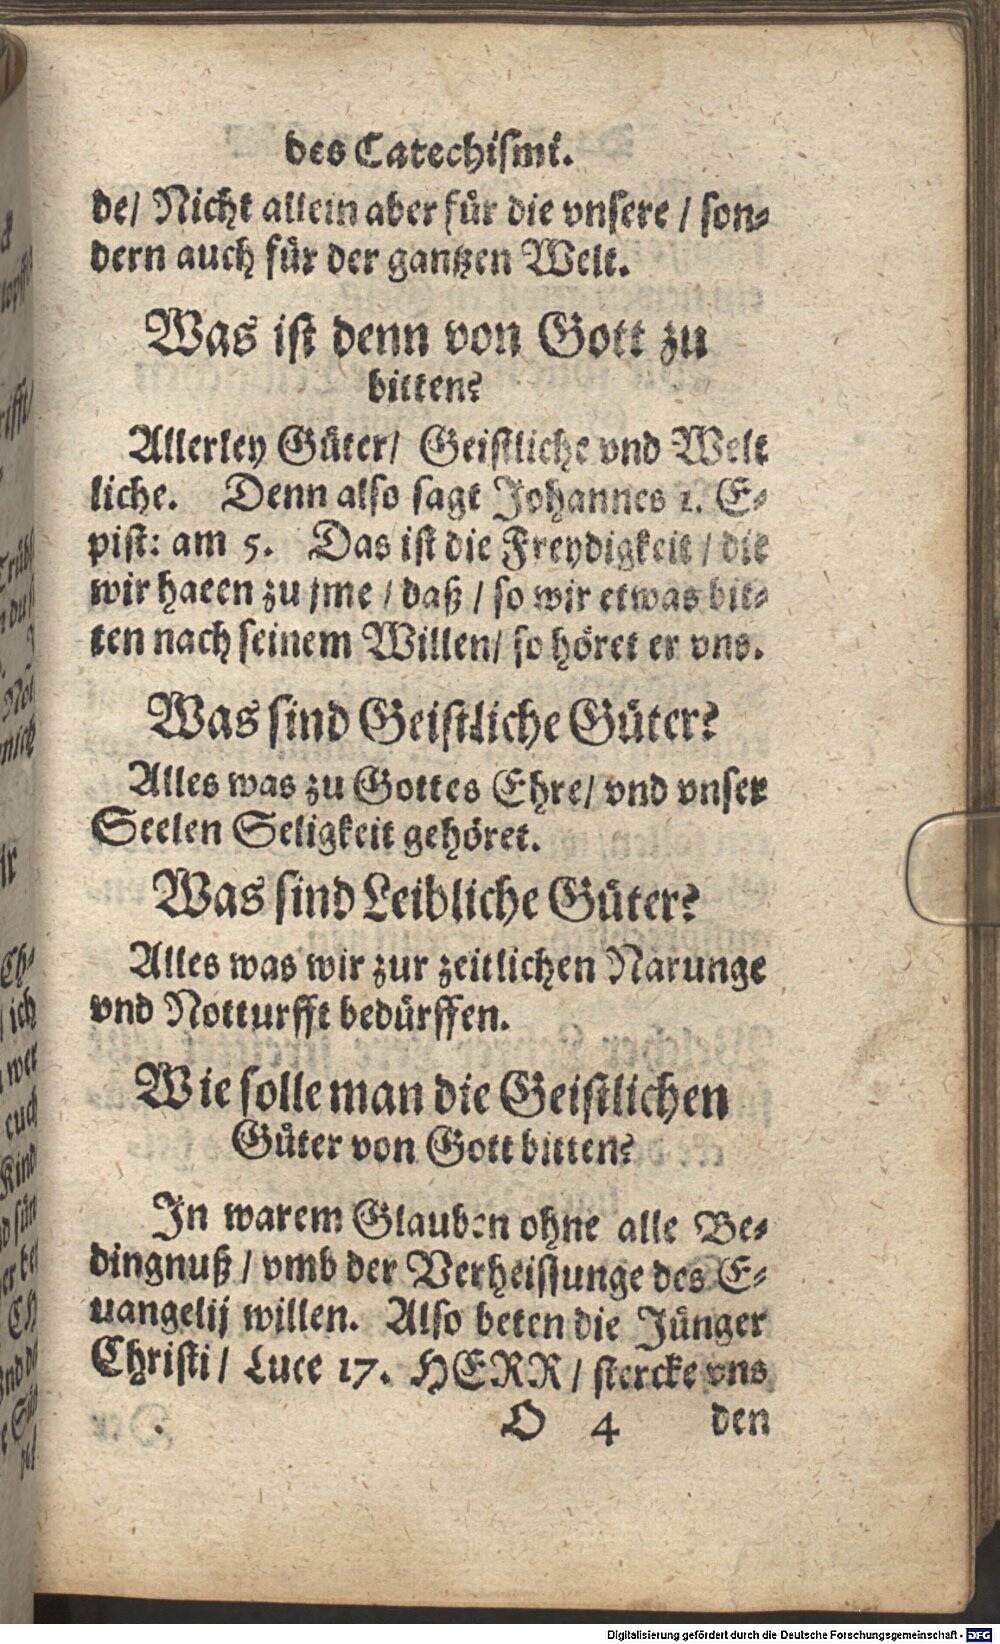 des Catechismi.
de/ Nicht allein aber für die vnsere / son-
dern auch für der gantzen Welt.
Was ist denn von Gott zu
bitten?
Allerley Güter/ Geistliche vnd Welt
liche. Denn also sagt Johannes 1. E-
pist: am 5. Das ist die Freydigkeit / die
wir haeen zu jme / daß / so wir etwas bit-
ten nach seinem Willen/ so höret er vns.
Was sind Geistliche Güter?
Alles was zu Gottes Ehre/ vnd vnser
Seelen Seligkeit gehöret.
Was sind Leibliche Güter?
Alles was wir zur zeitlichen Narunge
vnd Notturfft bedürffen.
Wie solle man die Geistlichen
Güter von Gott bitten?
In warem Glauben ohne alle Be-
dingnuß / vmb der Verheissunge des E-
uangelij willen. Also beten die Jünger
Christi / Luce 17. HERR / stercke vns
O 4 den
Digitalisierung gefördert durch die Deutsche Forschungsgemeinschaft - DFG